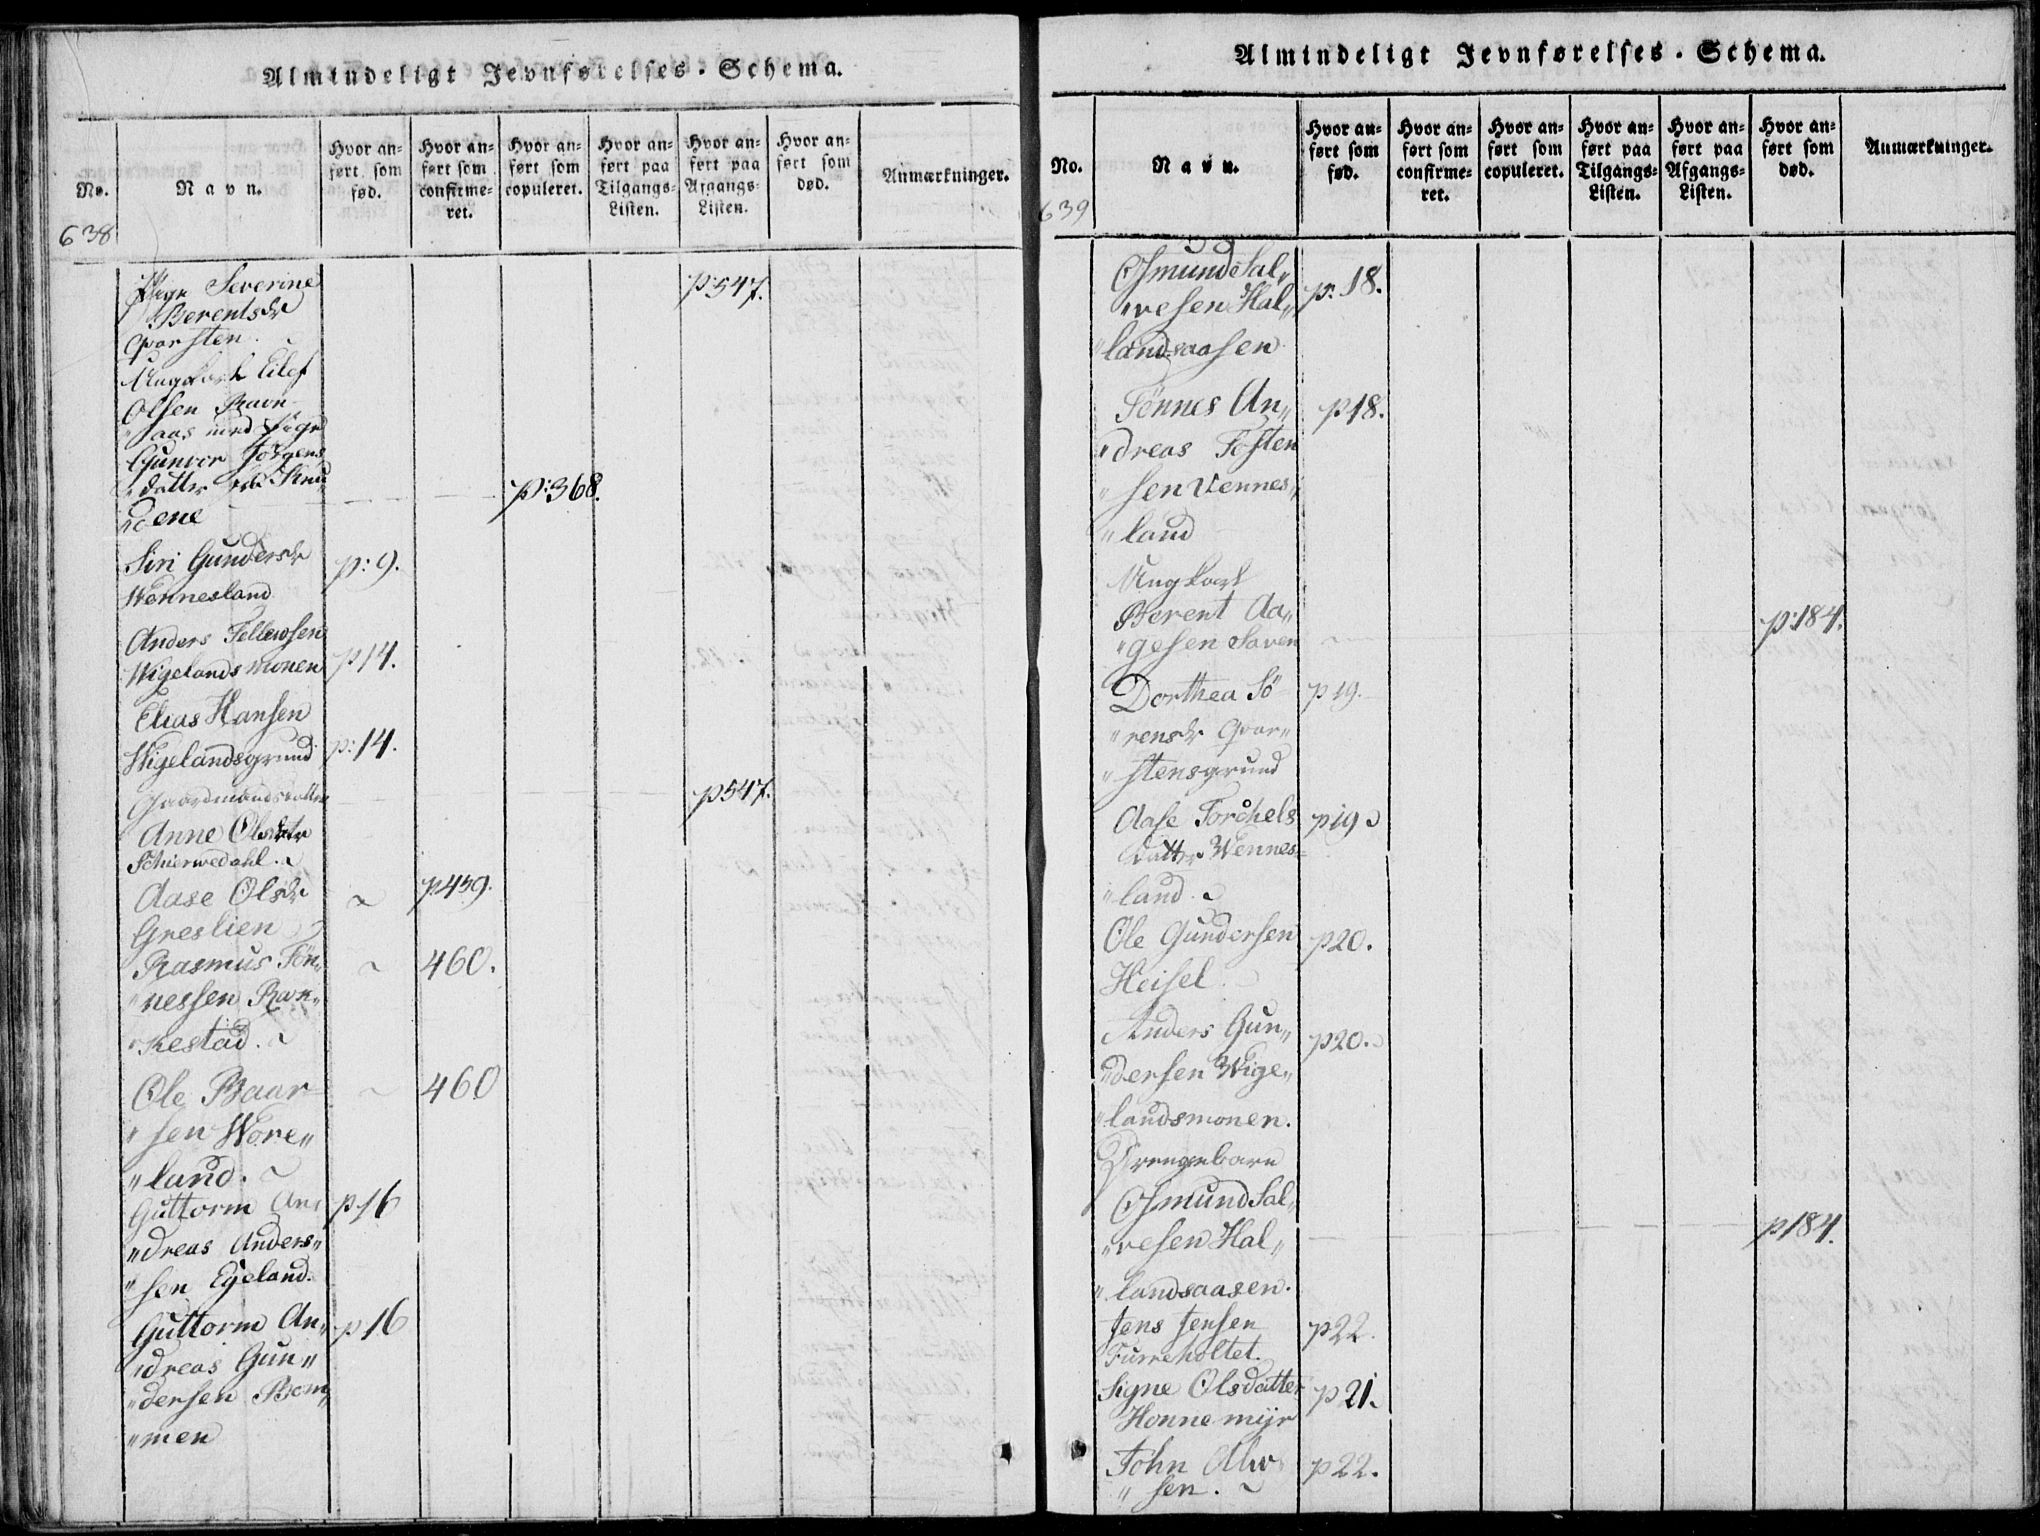 Almindeligt Jevnførelses-Schema.
No.
Navn.
Hvor anført som fød.
Hvor anført som confirmeret.
Hvor anført som copuleret.
Hvor anført paa Tilgangs-Listen.
Hvor anført paa Afgangs-Listen.
Hvor anført som død.
Anmærkninger.
638
Pige Severine p:547.
Berentsdr
Qvarsten.
Ungkarl Eilef
Olsen Ravn
aas med Pige
Gunvor Jörgens
"datter fra Stru
"dene p:368.
Siri Gundersdr p:9.
Wennesland
Anders Tellewsen
Wigelandsmonen p14.
Elias Hansen
Wigelandsgrund p:14.
Gaardmandsdatter p547.
Anne Olsdatr
Schierwedahl.
Aase Olsdr p459.
Greslien
Rasmus Tön" 460.
"nessen Rav"
"nestad.
Ole Baar 460
"sen Wore"
"land.
Guttorm An p16
"dreas Anders"
"sen Egeland.
Guttorm An" p16
"dreas Gun"
"dersen Bom"
"men
Almindeligt Jevnførelses-Schema.
No.
Navn.
Hvor anført som fød.
Hvor anført som confirmeret.
Hvor anført som copuleret.
Hvor anført paa Tilgangs-Listen.
Hvor anført paa Afgangs-Listen.
Hvor anført som død.
Anmærkninger.
639
Osmund Sal"
"vesen Hal" p:18.
"landsaasen
Tönnes An" p18.
"dreas Tosten
"sen Vennes"
"land
Ungkarl
Berent Aa" p:184.
"gesen Saven
Dorthea Sö p19.
"rensdr Qvar"
"stensgrund
Aase Torchels p19
datter Wennes=
"land.
Ole Gundersen p20.
Heisel.
Anders Gun" p20.
"dersen Wige"
"landsmonen.
Drengebarn
Osmund Sal"
"vesen Hal" p184.
"landsaasen.
Jens Jensen p22.
Furreholtet.
Signe Olsdatter p21.
Honnemyr
John Alw p22.
"sen.